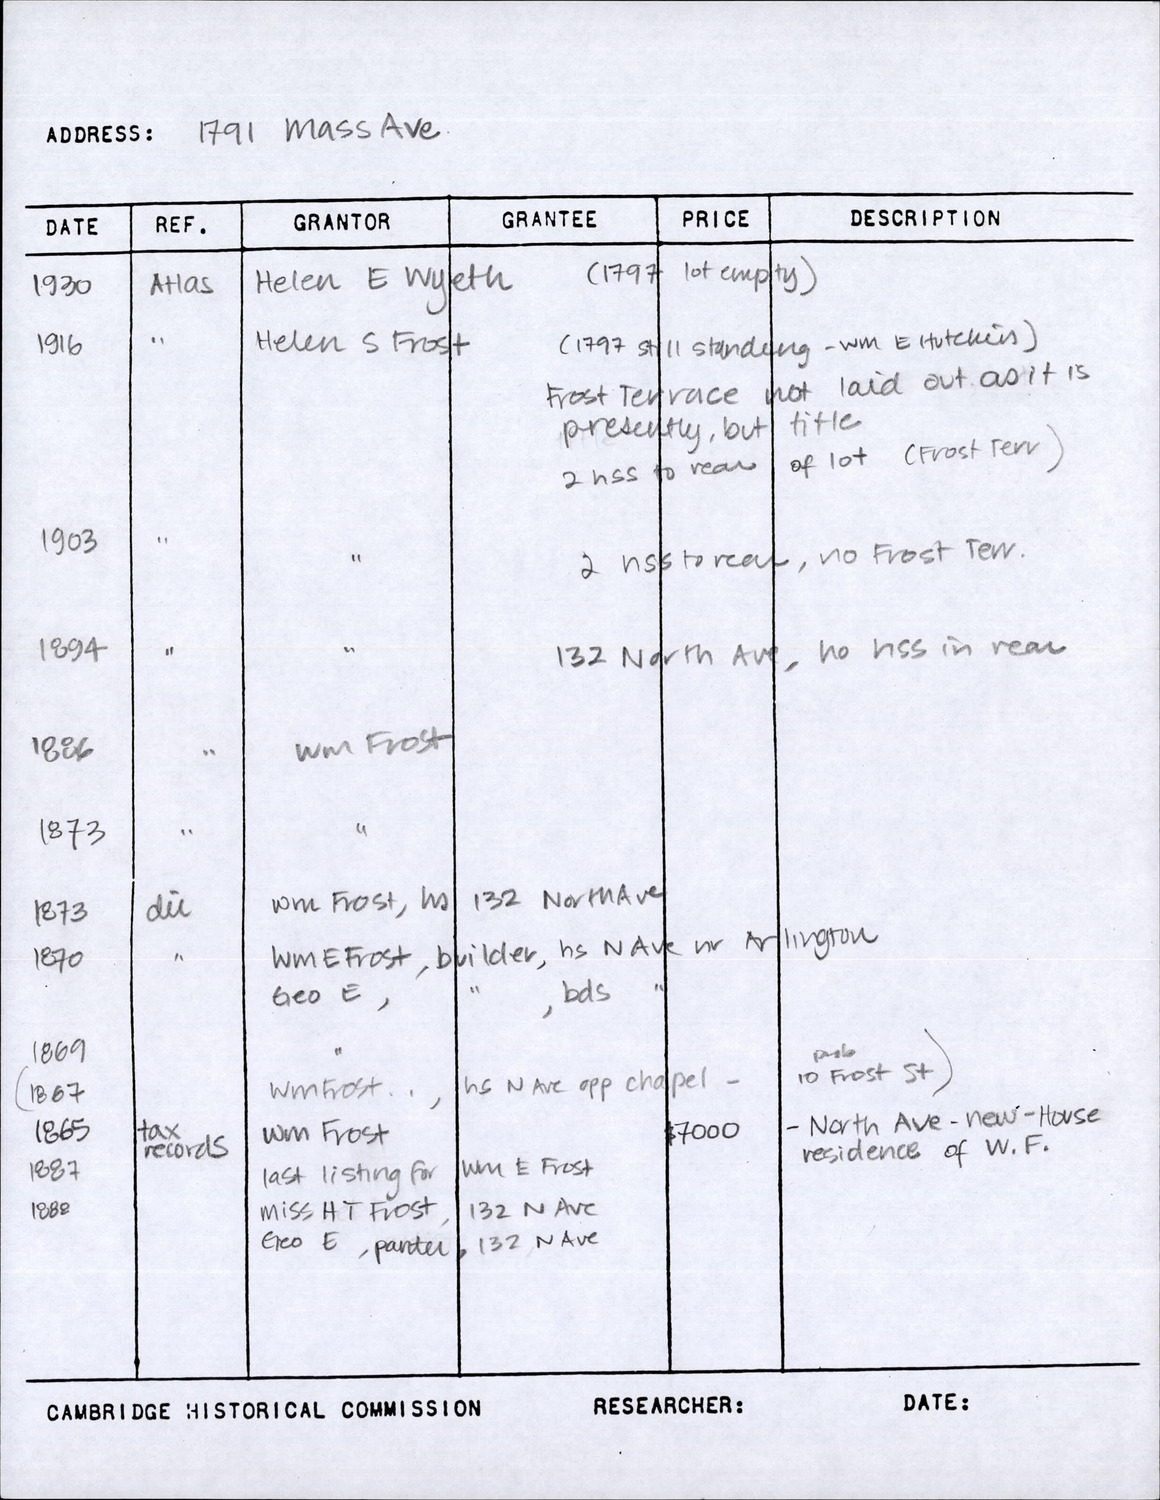 ADDRESS: 1791 Mass Ave.
DATE REF. GRANTOR GRANTEE PRICE DESCRIPTION
1930 Atlas Helen E Wyeth (1797 lot empty)
1916 " Helen S Frost (1797 still standing - Wm E Hutchins)
Frost Terrace not laid out as it is
presently, but title
2 hss to rear of lot (Frost Terr)
1903 " " 2 hss to rear, no Frost Terr.
1894 " " 132 North Ave, no hss in rear
1886 " Wm Frost
1873 " "
1873 dir Wm Frost, hs 132 North Ave
1870 " Wm E Frost, builder, hs N Ave nr Arlington
Geo E, " , bds "
1869 "
(1867 Wm Frost . . , hs N Ave opp chapel - prob
10 Frost St)
1865 tax records Wm Frost $7000 - North Ave - new - House
residence of W.F.
1887 last listing for Wm E Frost
1888 Miss H T Frost, 132 N Ave
Geo E, painter, 132 N Ave
CAMBRIDGE HISTORICAL COMMISSION RESEARCHER: DATE: